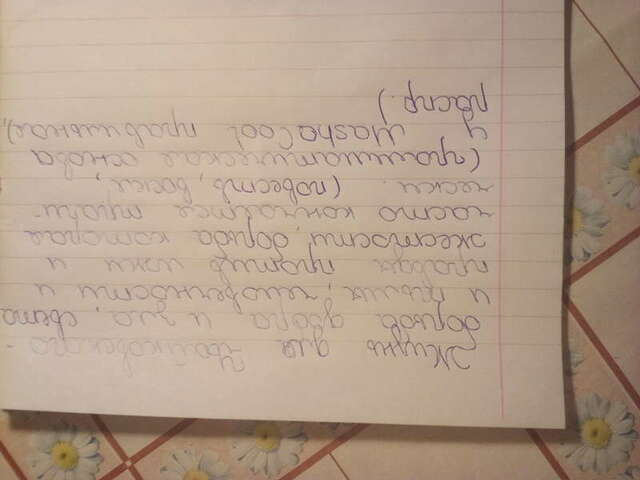 Жизнь для Чайковского -
борьба двора и зла, света
и тьмы, человечности, и
правды против лжи и
жестокости борьба которая
часто кончается траги-
чески. (повеств, воскл,
(грамматическая основа
у MashaCool правильная),
распр.)